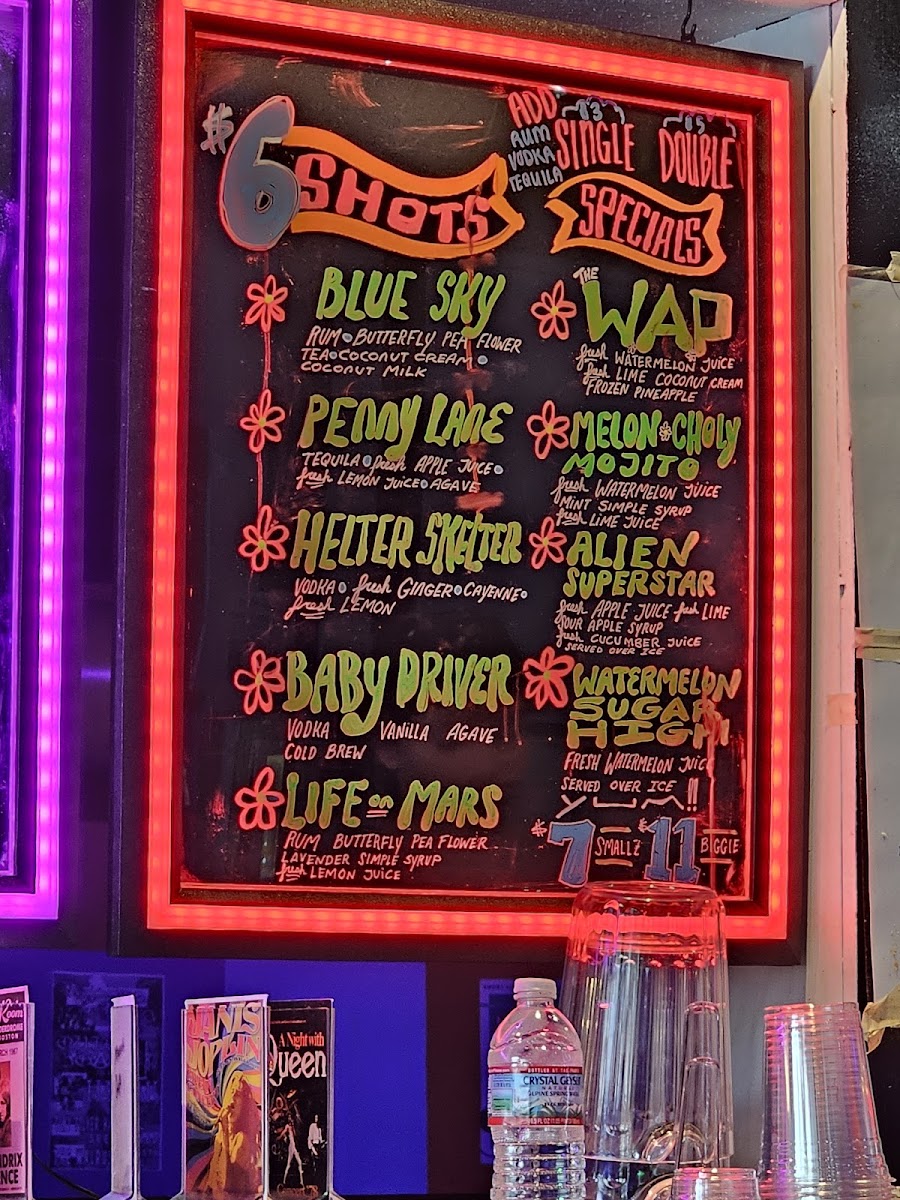 $6 SHOTS
BLUE SKY
RUM • BUTTERFLY PEA FLOWER
TEA • COCONUT CREAM •
COCONUT MILK
PENNY LANE
TEQUILA • fresh APPLE JUICE •
fresh LEMON JUICE • AGAVE
HELTER SKELTER
VODKA • fresh GINGER • CAYENNE •
fresh LEMON
BABY DRIVER
VODKA VANILLA AGAVE
COLD BREW
LIFE on MARS
RUM BUTTERFLY PEA FLOWER
LAVENDER SIMPLE SYRUP
fresh LEMON JUICE
ADD
RUM
VODKA
TEQUILA
$3
SINGLE
$5
DOUBLE
SPECIALS
THE
WAP
fresh WATERMELON JUICE
fresh LIME COCONUT CREAM
FROZEN PINEAPPLE
MELON CHOLY
MOJITO
fresh WATERMELON JUICE
MINT SIMPLE SYRUP
fresh LIME JUICE
ALIEN
SUPERSTAR
fresh APPLE JUICE fresh LIME
SOUR APPLE SYRUP
fresh CUCUMBER JUICE
SERVED OVER ICE
WATERMELON
SUGAR
HIGH
FRESH WATERMELON JUICE
SERVED OVER ICE
$7 SMALLZ $11 BIGGIE
JANIS
JOPLIN
A Night with
Queen
CRYSTAL GEYSER
NATURAL
ALPINE SPRING WATER